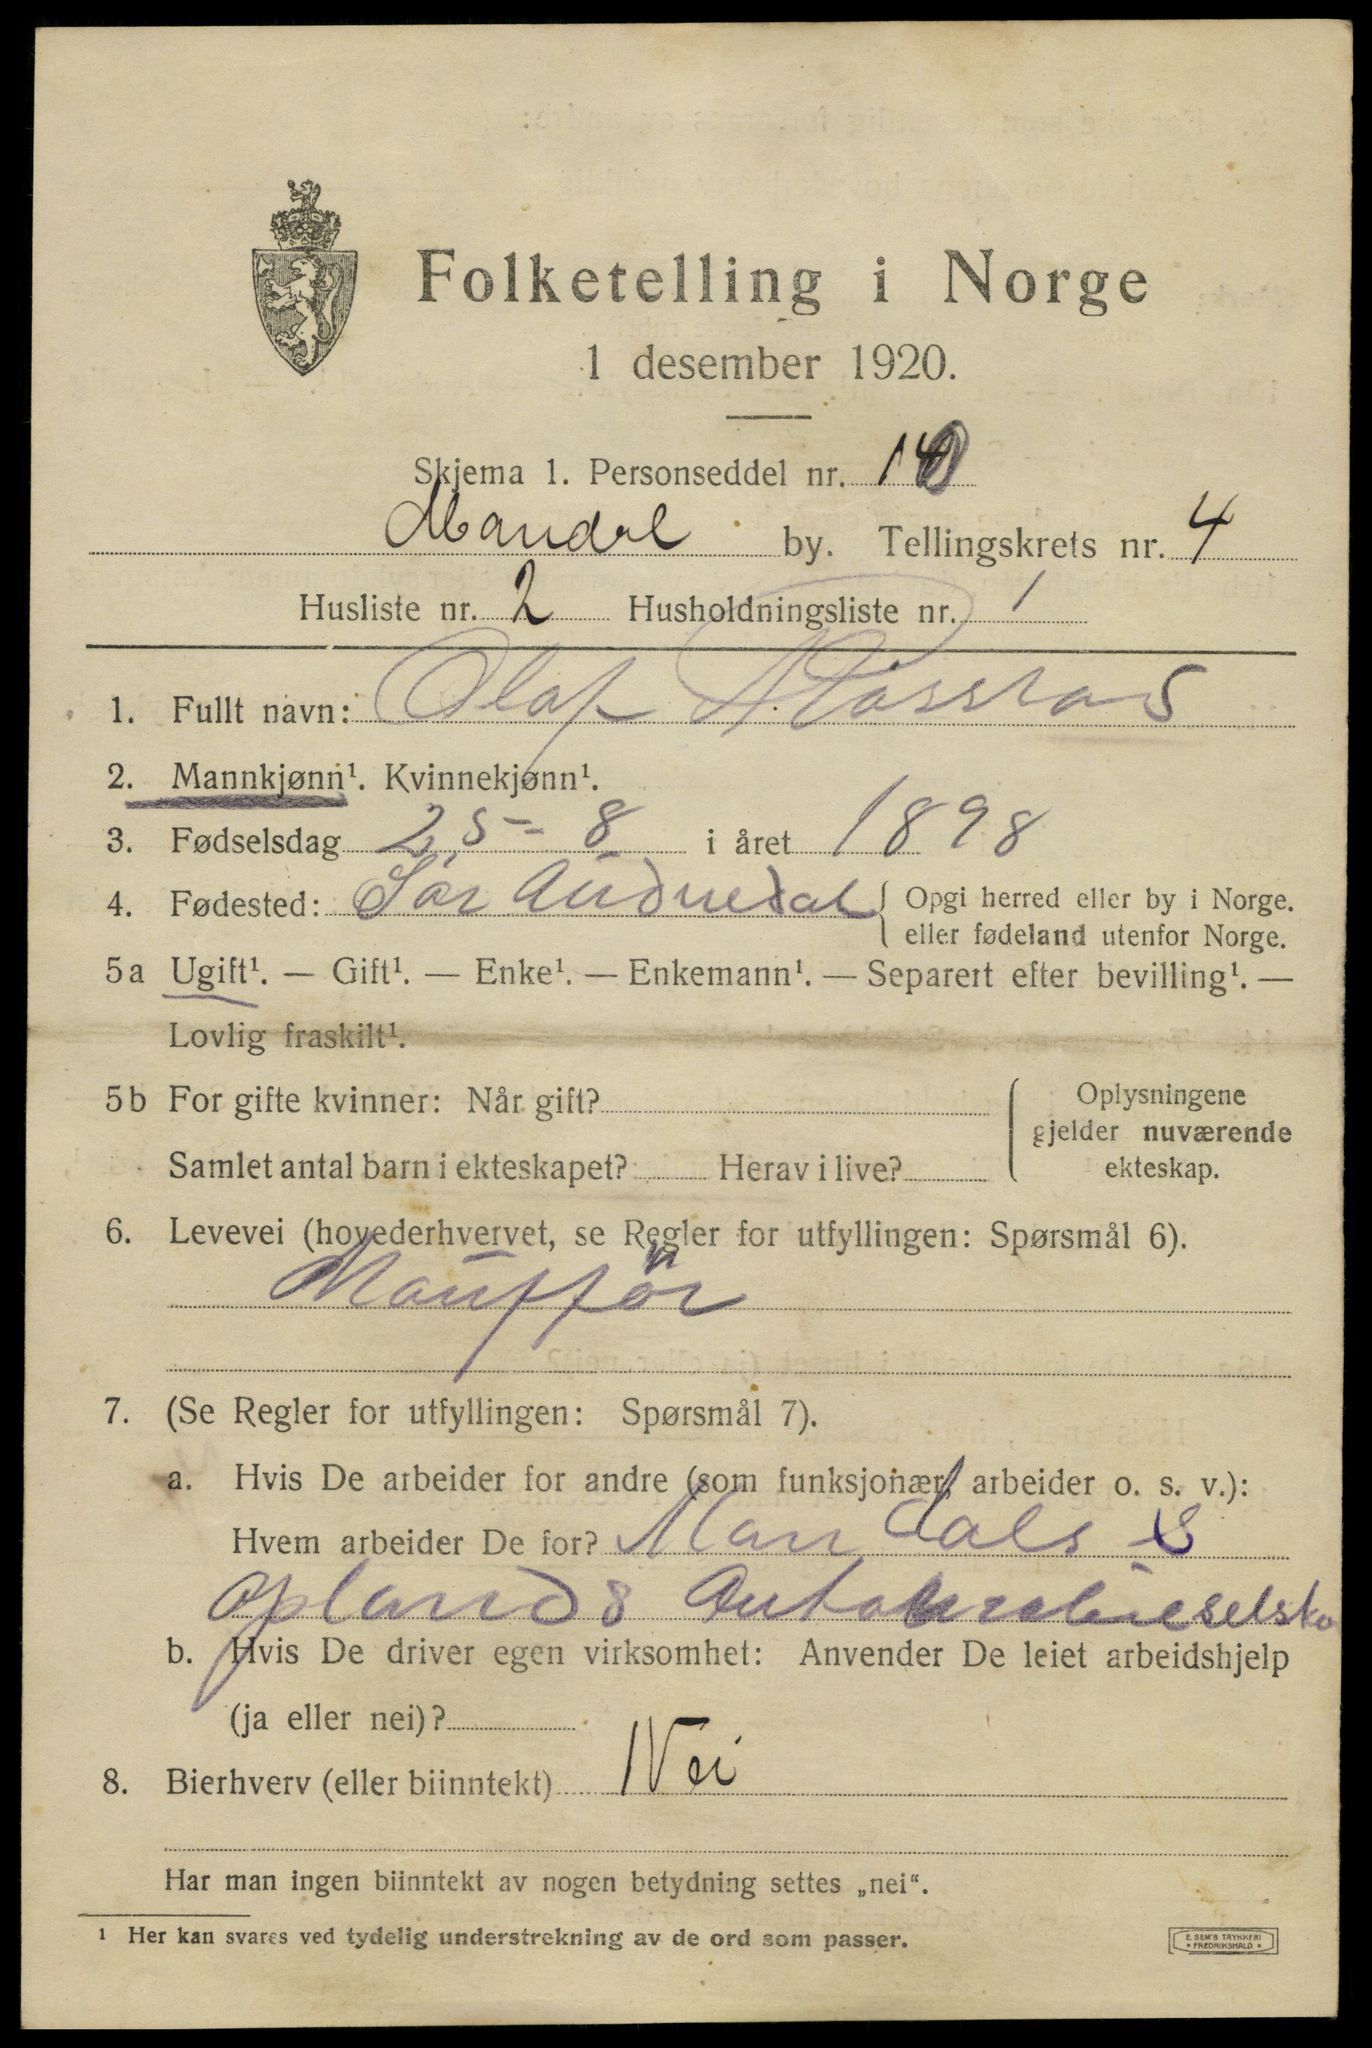 Folketelling i Norge
1 desember 1920.
Skjema 1. Personseddel nr. 14
Mandal by. Tellingskrets nr. 4
Husliste nr. 2 Husholdningsliste nr. 1
1. Fullt navn: Olaf
2. Mannkjønn¹. Kvinnekjønn¹.
3. Fødselsdag 25-8 i året 1898
4. Fødested: Sør Audnedal { Opgi herred eller by i Norge.
eller fødeland utenfor Norge.
5a Ugift¹. — Gift¹. — Enke¹. — Enkemann¹. — Separert efter bevilling¹. —
Lovlig fraskilt¹.
5b For gifte kvinner: Når gift?
Samlet antal barn i ekteskapet? Herav i live?
Oplysningene
gjelder nuværende
ekteskap.
6. Levevei (hovederhvervet, se Regler for utfyllingen: Spørsmål 6).
7. (Se Regler for utfyllingen: Spørsmål 7).
a. Hvis De arbeider for andre (som funksjonær, arbeider o. s. v.):
Hvem arbeider De for? Mandals &
oplands
b. Hvis De driver egen virksomhet: Anvender De leiet arbeidshjelp
(ja eller nei)?
8. Bierhverv (eller biinntekt) Nei
Har man ingen biinntekt av nogen betydning settes „nei“.
¹ Her kan svares ved tydelig understrekning av de ord som passer.
E. SEM'S TRYKKERI
• FREDRIKSHALD •